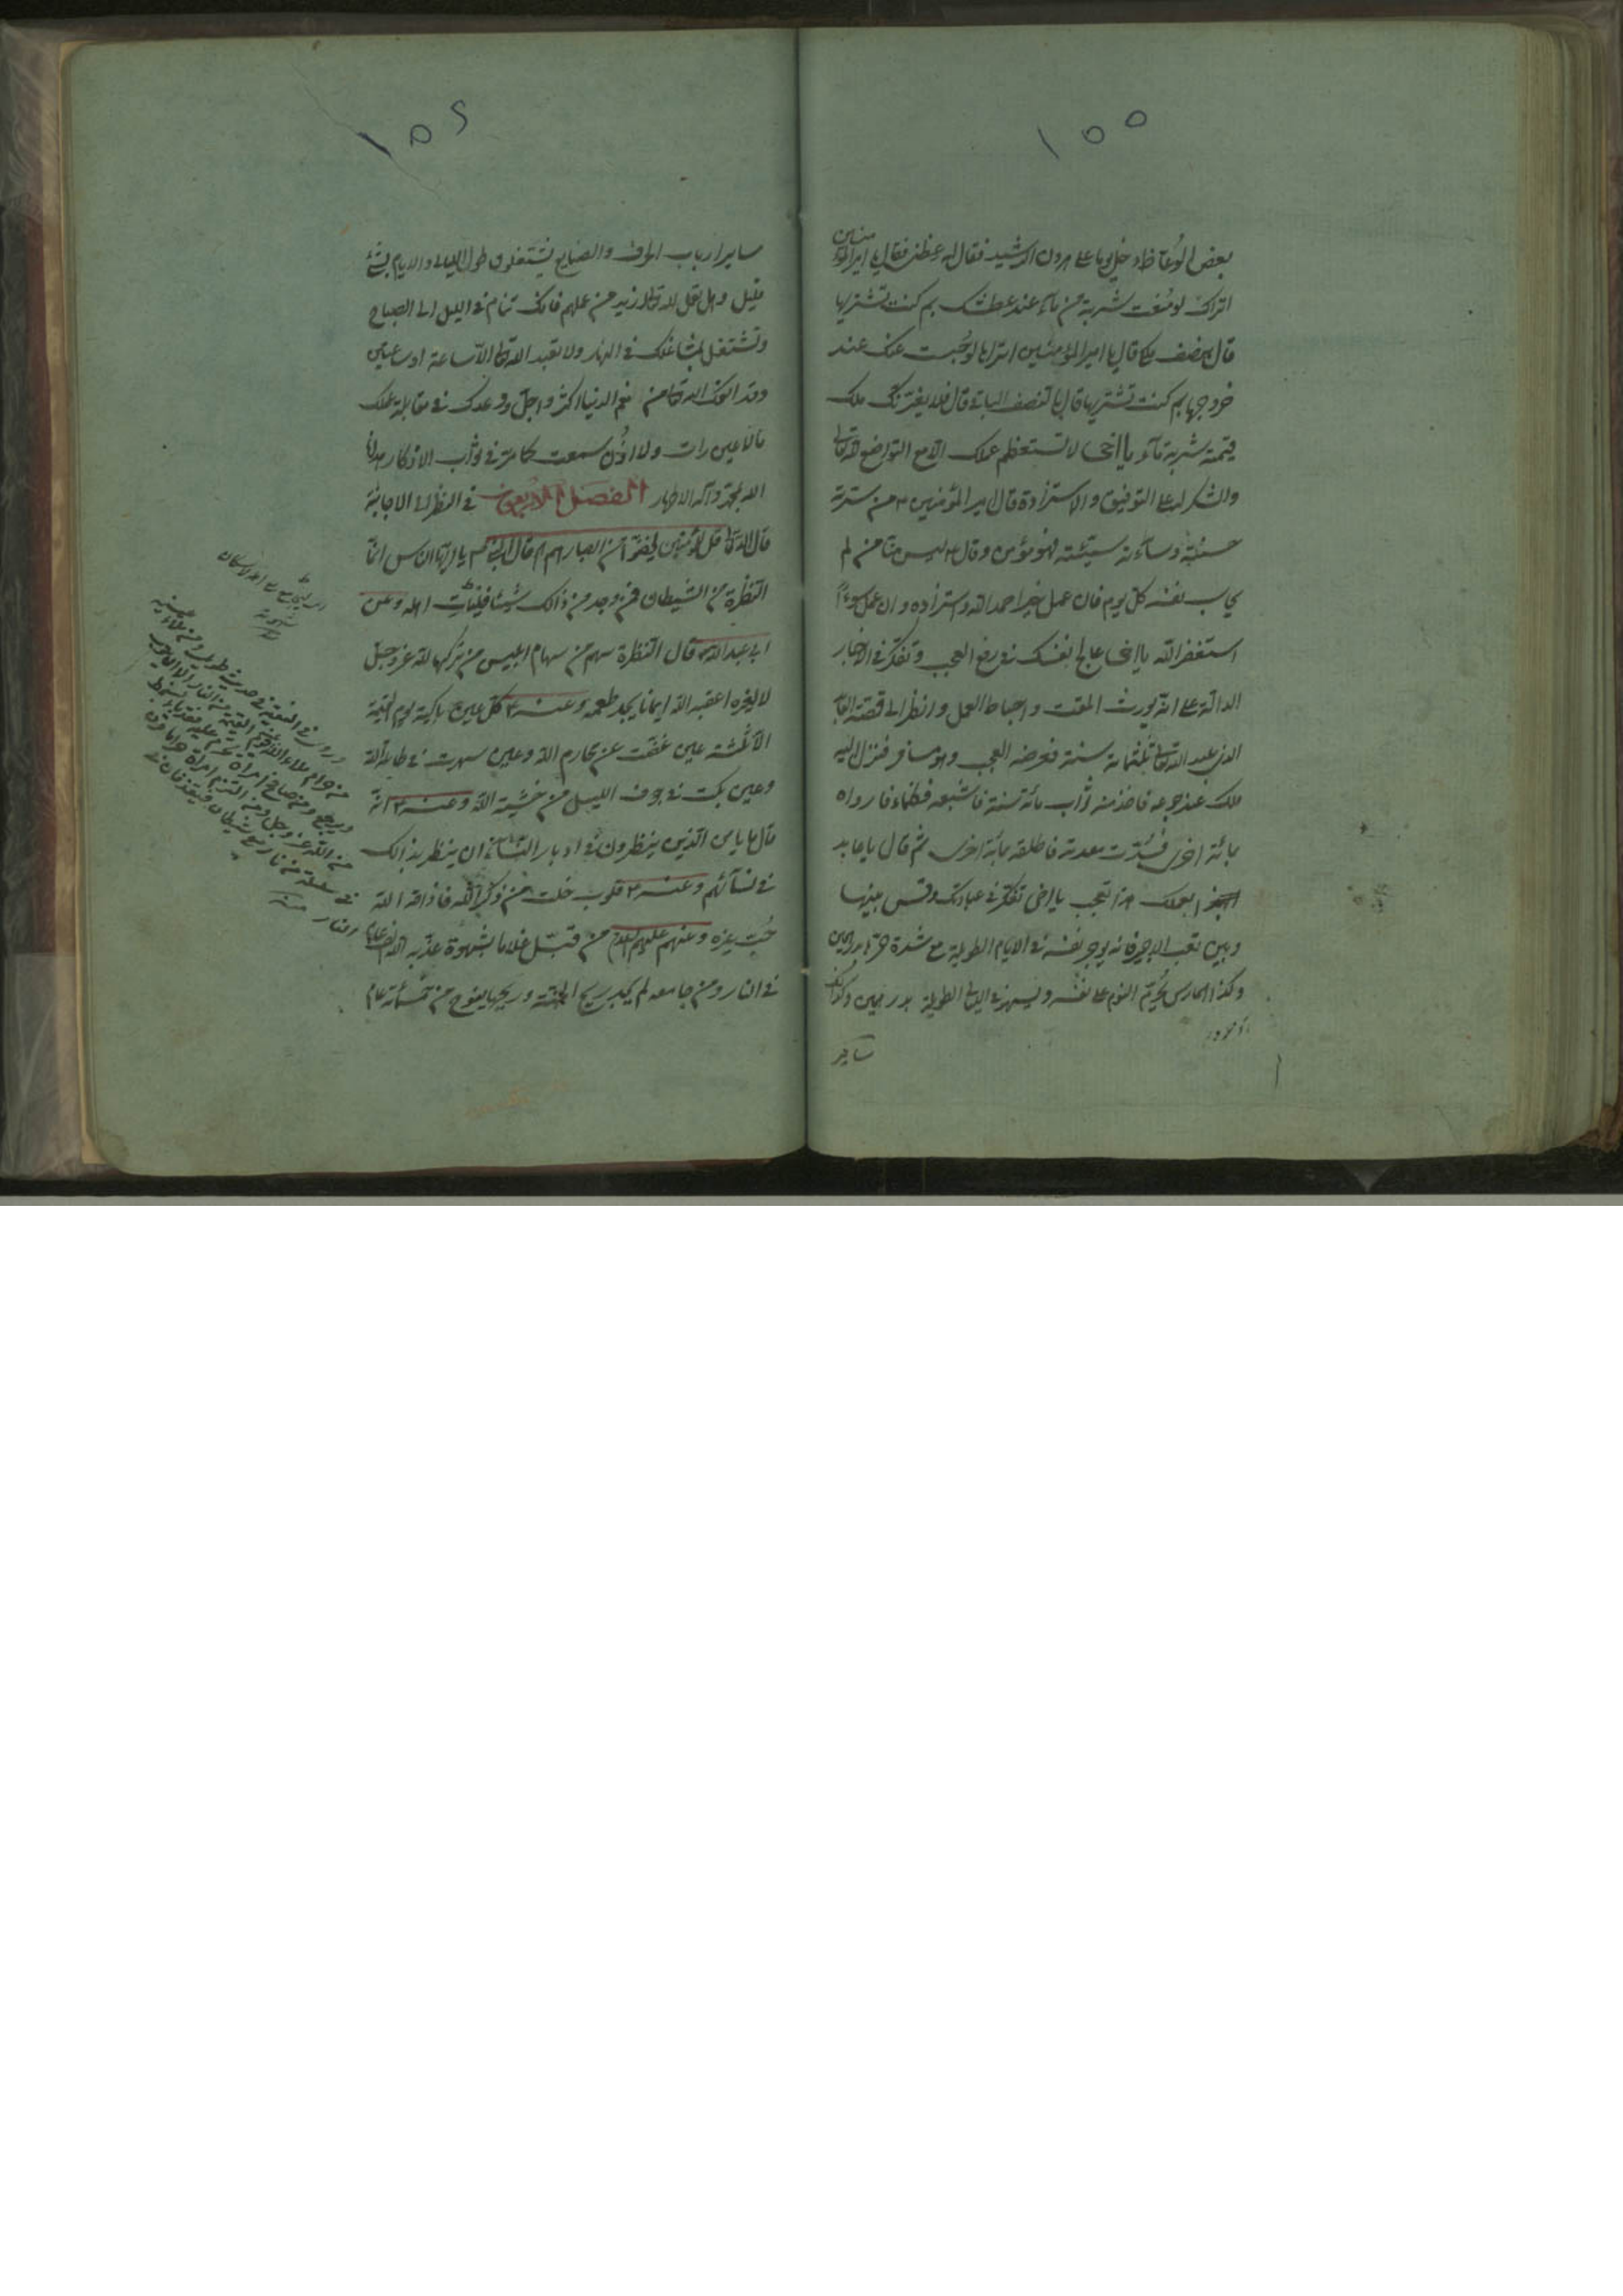 ١٥٥
بعض الوعّاظ دخل يوما على هرون الرشيد فقال له عظنى فقال يا امير المؤمنين
اتراك لو مُنعت شربة من مآء عند عطشك بم كنت تشتريها
قال بنصف ملكى قال يا امير المؤمنين اتراها لو حُبست عنك عند
خروجها بم كنت تشتريها قال بالنصف الباقى قال فلا يغرّنك ملك
قيمته شربة مآء يا اخى لا تستعظم عملك الا مع التواضع لله تعالى
والشكر له على التوفيق والاستزادة قال امير المؤمنين ٤ من سرّته
حسنته وسآءته سيّئته فهو مؤمن وقال ٤ ليس منّا من لم
يحاسب نفسه كل يوم فان عمل خيرا حمد الله واستزاده وان عمل سوءً
استغفر الله يا اخى عالج نفسك فى رفع العجب وتفكّر فى الاخبار
الدالّة على انه يورث المقت واحباط العمل وانظر الى قصّة العابد
الذى عبد الله تعالى ثلثمائة سنة فعرضه العجب وهو مسافر فنزل اليه
ملك عند جوعه فاخذ منه ثواب مائة سنة فاشبعه فظماء فارواه
بمائة اخرى فسُدّت معدته فاطلقه بمائة اخرى ثم قال يا عابد
بعملك هذا تعجب يا اخى تفكّر فى عبادتك وقس بينها
وبين تعب الاجير فانه يوجر نفسه فى الايام الطويلة مع شدة حرّها بدرهمين
وكذا الحارس يُحرّم النوم على نفسه ويسهر فى الليالى الطويلة بدرهمين وكذلك
ساير
ساير ارباب الحرف والصنايع يشتغلون طول الليالى والايام بشئ
قليل وهل تقبل لله تعالى ازيد من عملهم فانك تنام فى الليل الى الصباح
وتشتغل بمشاغلك فى النهار ولا تعبد الله تعالى الا ساعة او ساعتين
وقد اتوك الله تعالى من نعم الدنيا اكثر واجلّ ووعدك فى مقابلة عملك
ما لا عين رات ولا اذُن سمعت كما مرّ فى ثواب الاذكار هدانا
الله بمحمّد وآله الاطهار الفصل الاربعون فى النظر الى الاجانب
قال الله تعالى قل للمؤمنين يغضّوا من ابصارهم قال النبى ص يا ايها الناس انّما
النظرة من الشيطان فمن وجد من ذالك شيئا فليات اهله وعن
ابى عبد الله ٤ قال النظرة سهم من سهام ابليس من تركها لله عز وجل
لا لغيره اعقبه الله ايمانا يجد طعمه وعنه ٤ كلّ عين باكية يوم القيمة
الا ثلثة عين غضّت عن محارم الله وعين سهرت فى طاعة الله
وعين بكت فى جوف الليل من خشية الله وعنه ٤ انّه
قال ما يامن الذين ينظرون فى ادبار النسآء ان ينظر بذالك
فى نسآئهم وعنه ٤ قلوب خلت من ذكر الله فاذاقه الله
حُبّ غيره وعنهم عليهم السلام من قبّل غلاما بشهوة عذّبه الله الف عام
فى النار ومن جامعه لم يجد ريح الجنة وريحها يفوح من خمسمائة عام
وروى فى الفقيه فى حديث طويل ومن ملاء عينيه
من حرام ملاء الله عينيه يوم القيمة من النار الا ان يتوب
ويرجع ومن صافح امراة تحرم عليه فقد باء بسخط
من الله عز وجل ومن التزم امراة حراما قرن
فى سلسلة من نار مع شيطان فيقذفان فى
النار منه